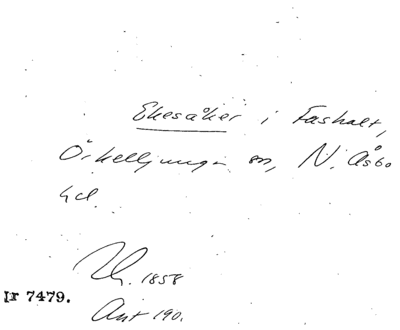 Ekesåker i Fashalt,
Örkelljunga sn, N. Åsbo
hd.
1858
Ir 7479.
Ant 190.